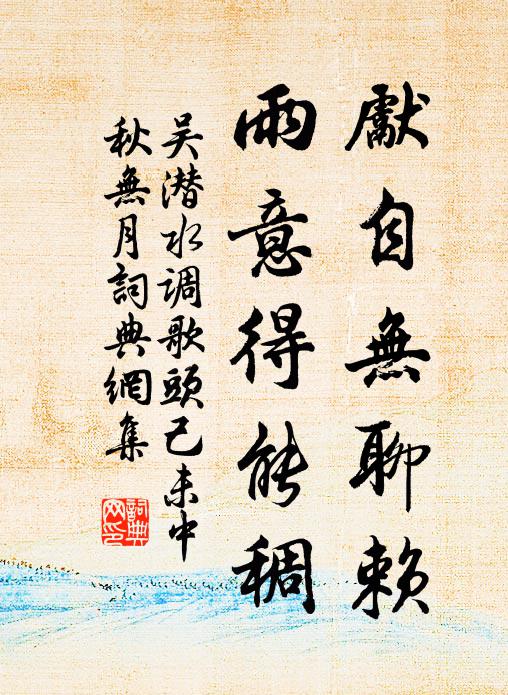 獻自無聊賴
雨意得能稠
吴潜水调歌頭己未中
秋無月詞典網集
詞典
网印